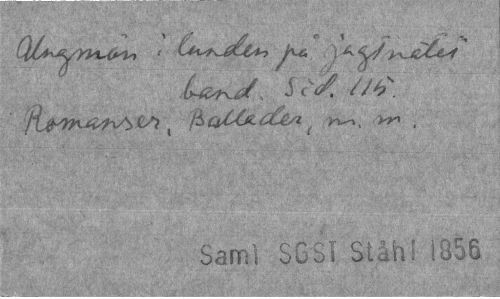 Ungmön i lunden på jagtnätet
band. Sid. 115.
Romanser, Ballader, m. m.
Saml SGSI Ståhl 1856